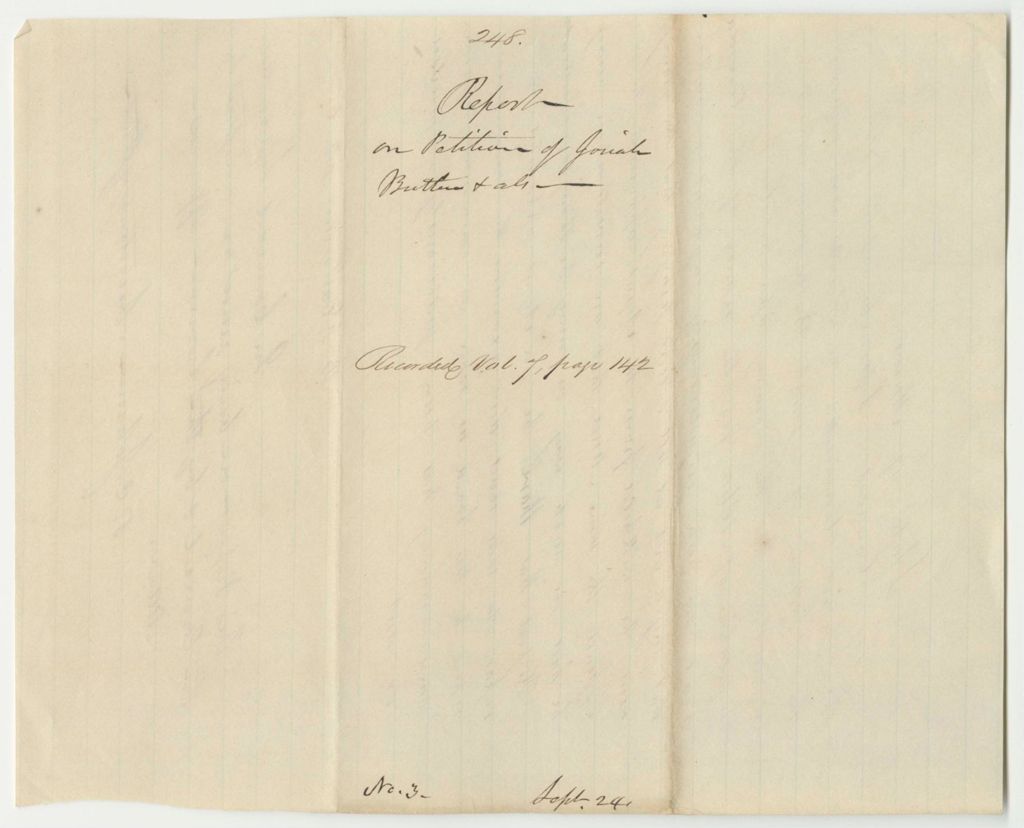 248.
Report
on Petition of Josiah
Butler & als
Recorded Vol. 7, page 142
No. 3. Sept. 24.